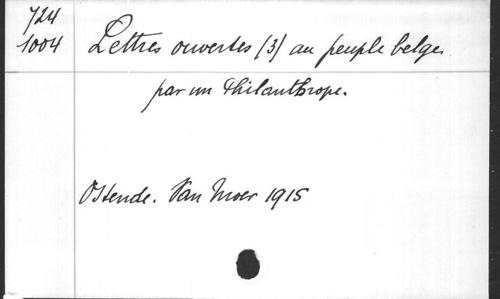 724
1004
Lettres ouvertes (3) au peuple belge
par un Philanthrope.
Ostende. Van Moer 1915